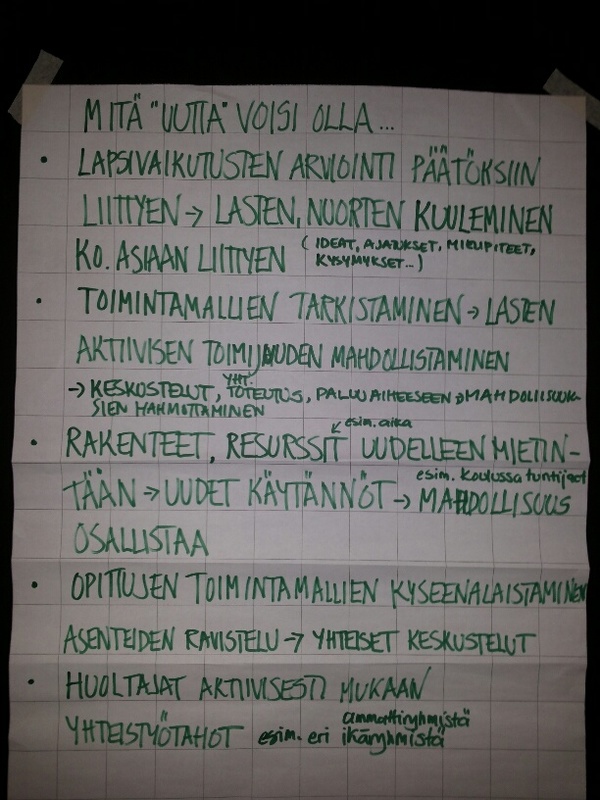 MITÄ "UUTTA" VOISI OLLA...
• LAPSIVAIKUTUSTEN ARVIOINTI PÄÄTÖKSIIN
LIITTYEN → LASTEN, NUORTEN KUULEMINEN
KO. ASIAAN LIITTYEN (IDEAT, AJATUKSET, MIELIPITEET,
KYSYMYKSET...)
• TOIMINTAMALLIEN TARKISTAMINEN → LASTEN
AKTIIVISEN TOIMIJUUDEN MAHDOLLISTAMINEN
YHT.
→ KESKOSTELUT, TOTEUTUS, PALUU AIHEESEEN → MAHDOLLISUUK-
SIEN HAHMOTTAMINEN
esim. aika
• RAKENTEET, RESURSSIT UUDELLEEN MIETIN-
esim. koulussa tuntijaot
TÄÄN → UUDET KÄYTÄNNÖT → MAHDOLLISUUS
OSALLISTAA
• OPITTUJEN TOIMINTAMALLIEN KYSEENALAISTAMINEN
ASENTEIDEN RAVISTELU → YHTEISET KESKUSTELUT
• HUOLTAJAT AKTIIVISESTI MUKAAN
ammattiryhmistä
YHTEISTYÖTAHOT esim. eri ikäryhmistä